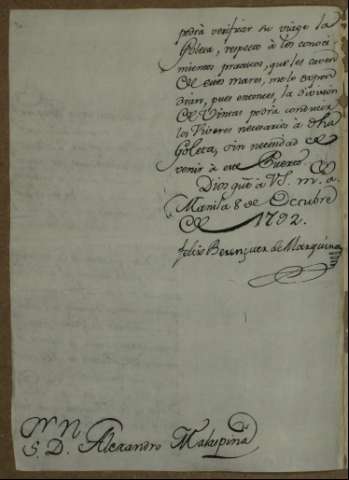 podrá verificar su viage la
Goleta, respecto à los conoci-
mientos practicos, que les
de estos mares, me lo
drian, pues entonces, la division
de Vintas podrá conducir
los Viveres necesarios à dha
Goleta, sin necesidad de
venir à este Puerto.
Dios gũe à VS. m. a.
Manila 8 de Octubre
de 1792.
Felix Berenguer de Marquina
S. D. Alexandro Malaspina